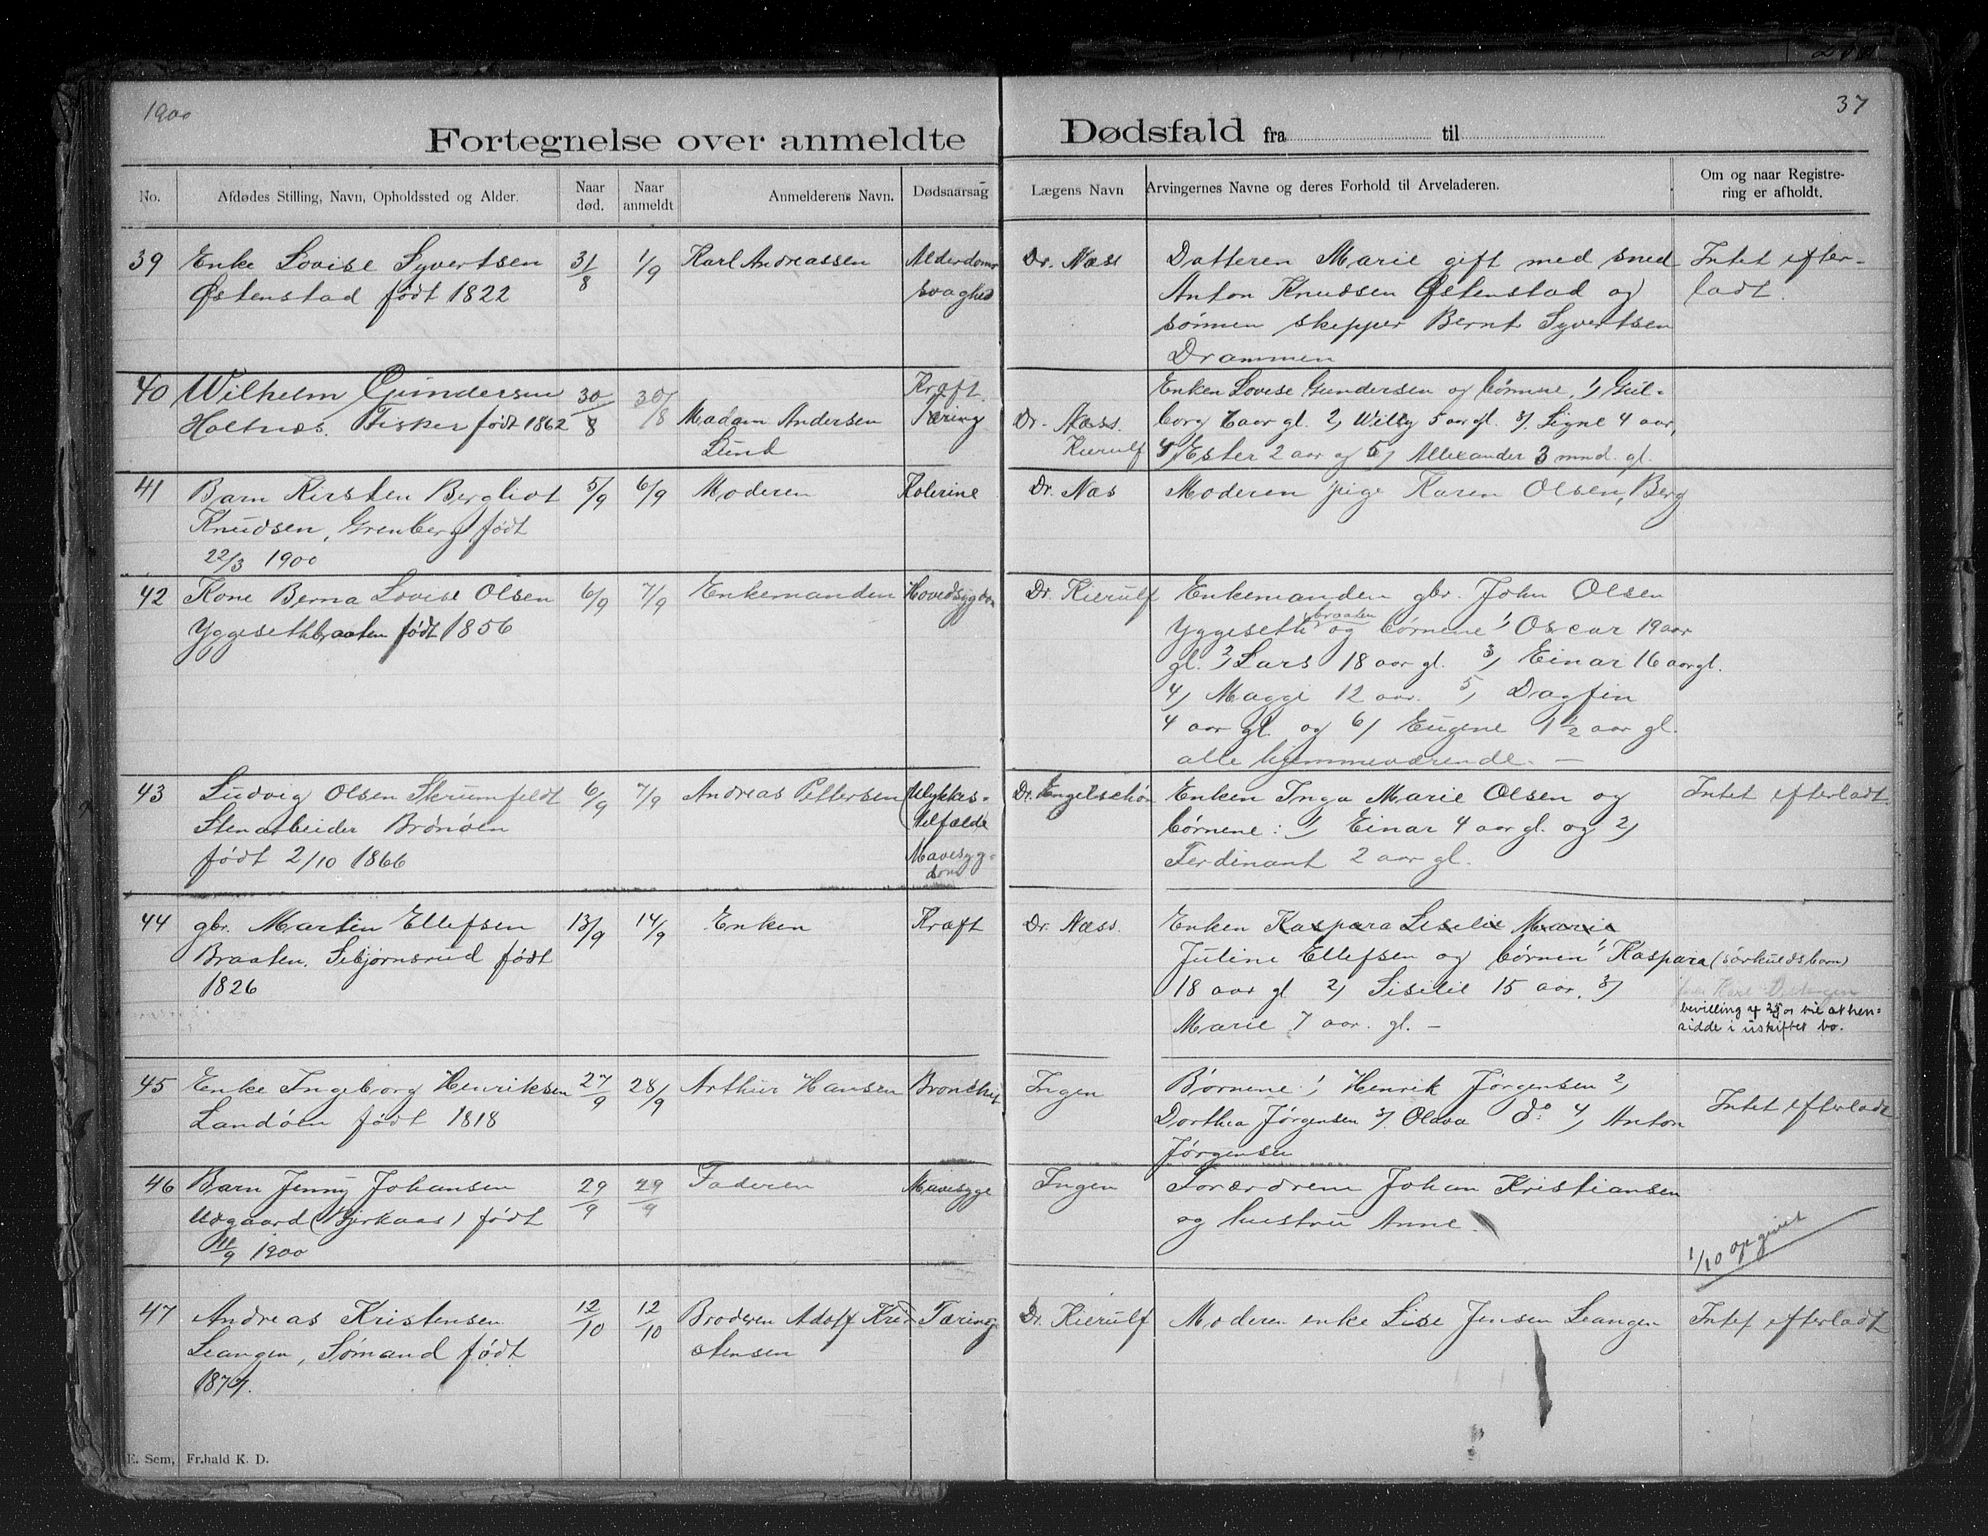 1900
37
Fortegnelse over anmeldte Dødsfald fra til
No. Afdødes Stilling, Navn, Opholdssted og Alder. Naar død. Naar anmeldt Anmelderens Navn. Dødsaarsag Lægens Navn Arvingernes Navne og deres Forhold til Arveladeren. Om og naar Registrering er afholdt.
39 Enke Lovise Syvertsen 31/8 1/9 Karl Andreassen Alderdoms Dr. Næss Datteren Marie gift med smed Intet efter-
Østenstad født 1822 svaghed Anton Knudsen Østenstad og ladt.
sønnen skepper Bernt Syvertsen
Drammen
40 Wilhelm Gundersen 30/8 30/8 Madam Andersen Kræft. Enken Lovise Gundersen og børnene, 1/ Gul-
Holtnæs. Fisker født 1862 Lund Tæring Dr. Næss. borg aar gl. 2, Willy 5 aar gl. 3/. Signe 4 aar,
Kierulf 4, Ester 2 aar og 5, Allexander 3 mnd. gl.
41 Barn Kirsten Bergliot 5/9 6/9 Moderen Kolerine Dr. Næs Moderen pige Karen Olsen, Berg
Knudsen, Grenberg født
22/3 1900
42 Kone Berna Lovise Olsen 6/9 7/9 Enkemanden Hovedsygdom Dr. Kierulf Enkemanden gbr. John Olsen
Yggesethbraaten født 1856 Yggeseth braaten og børnene 1, Oscar 19 aar
gl. 2, Lars 18 aar gl. 3, Einar 16 aar gl.
4, Magge 12 aar. 5, Dagfin
4 aar gl. og 6/ Eugene 1 1/2 aar gl.
alle hjemmeværende. —
43 Ludvig Olsen Skrumfeldt 6/9 7/9 Andreas Pettersen Ulykkes- Dr. Engelschøn Enken Inga Marie Olsen og Intet efterladt
Stenarbeider Brønøen tilfælde børnene: 1, Einar 4 aar gl. og 2,
født 2/10 1866 Mavesyg- Ferdinant 2 aar gl.
dom
44 gbr. Martin Ellefsen 13/9 14/9 Enken Kræft Dr. Næss. Enken Kaspara Liselie Marie
Braaten. Sibjørnsrud født Juline Ellefsen og børnen 1, Kaspara (særkuldsbarn)
1826 18 aar gl 2, Siselie 15 aar, 3/
bevilling af 25/ til at hen-
Marie 7 aar. gl. — sidde i uskiftet bo.
45 Enke Ingeborg Henriksen 27/9 28/9 Arthur Hansen Bronchit Ingen Børnene: 1, Henrik Jørgensen 2,
Landøen født 1818 Dorthea Jørgensen 3/. Olava do 4, Anton Intet efterladt
Jørgensen
46 Barn Jenny Johansen 29/9 29/9 Faderen Mavesyge Ingen Forældrene Johan Kristiansen
Udgaard (Bjerkaas) født og hustru Anne.
11/9 1900 1/10 opgivet
47 Andreas Kristensen 12/10 12/10 Broderen Adolf Kri- Tæring Dr. Kierulf Moderen enke Lise Jensen Leangen Intet efterladt
Leangen, Sømand født stensen
E. Sem, Fr.hald K. D.